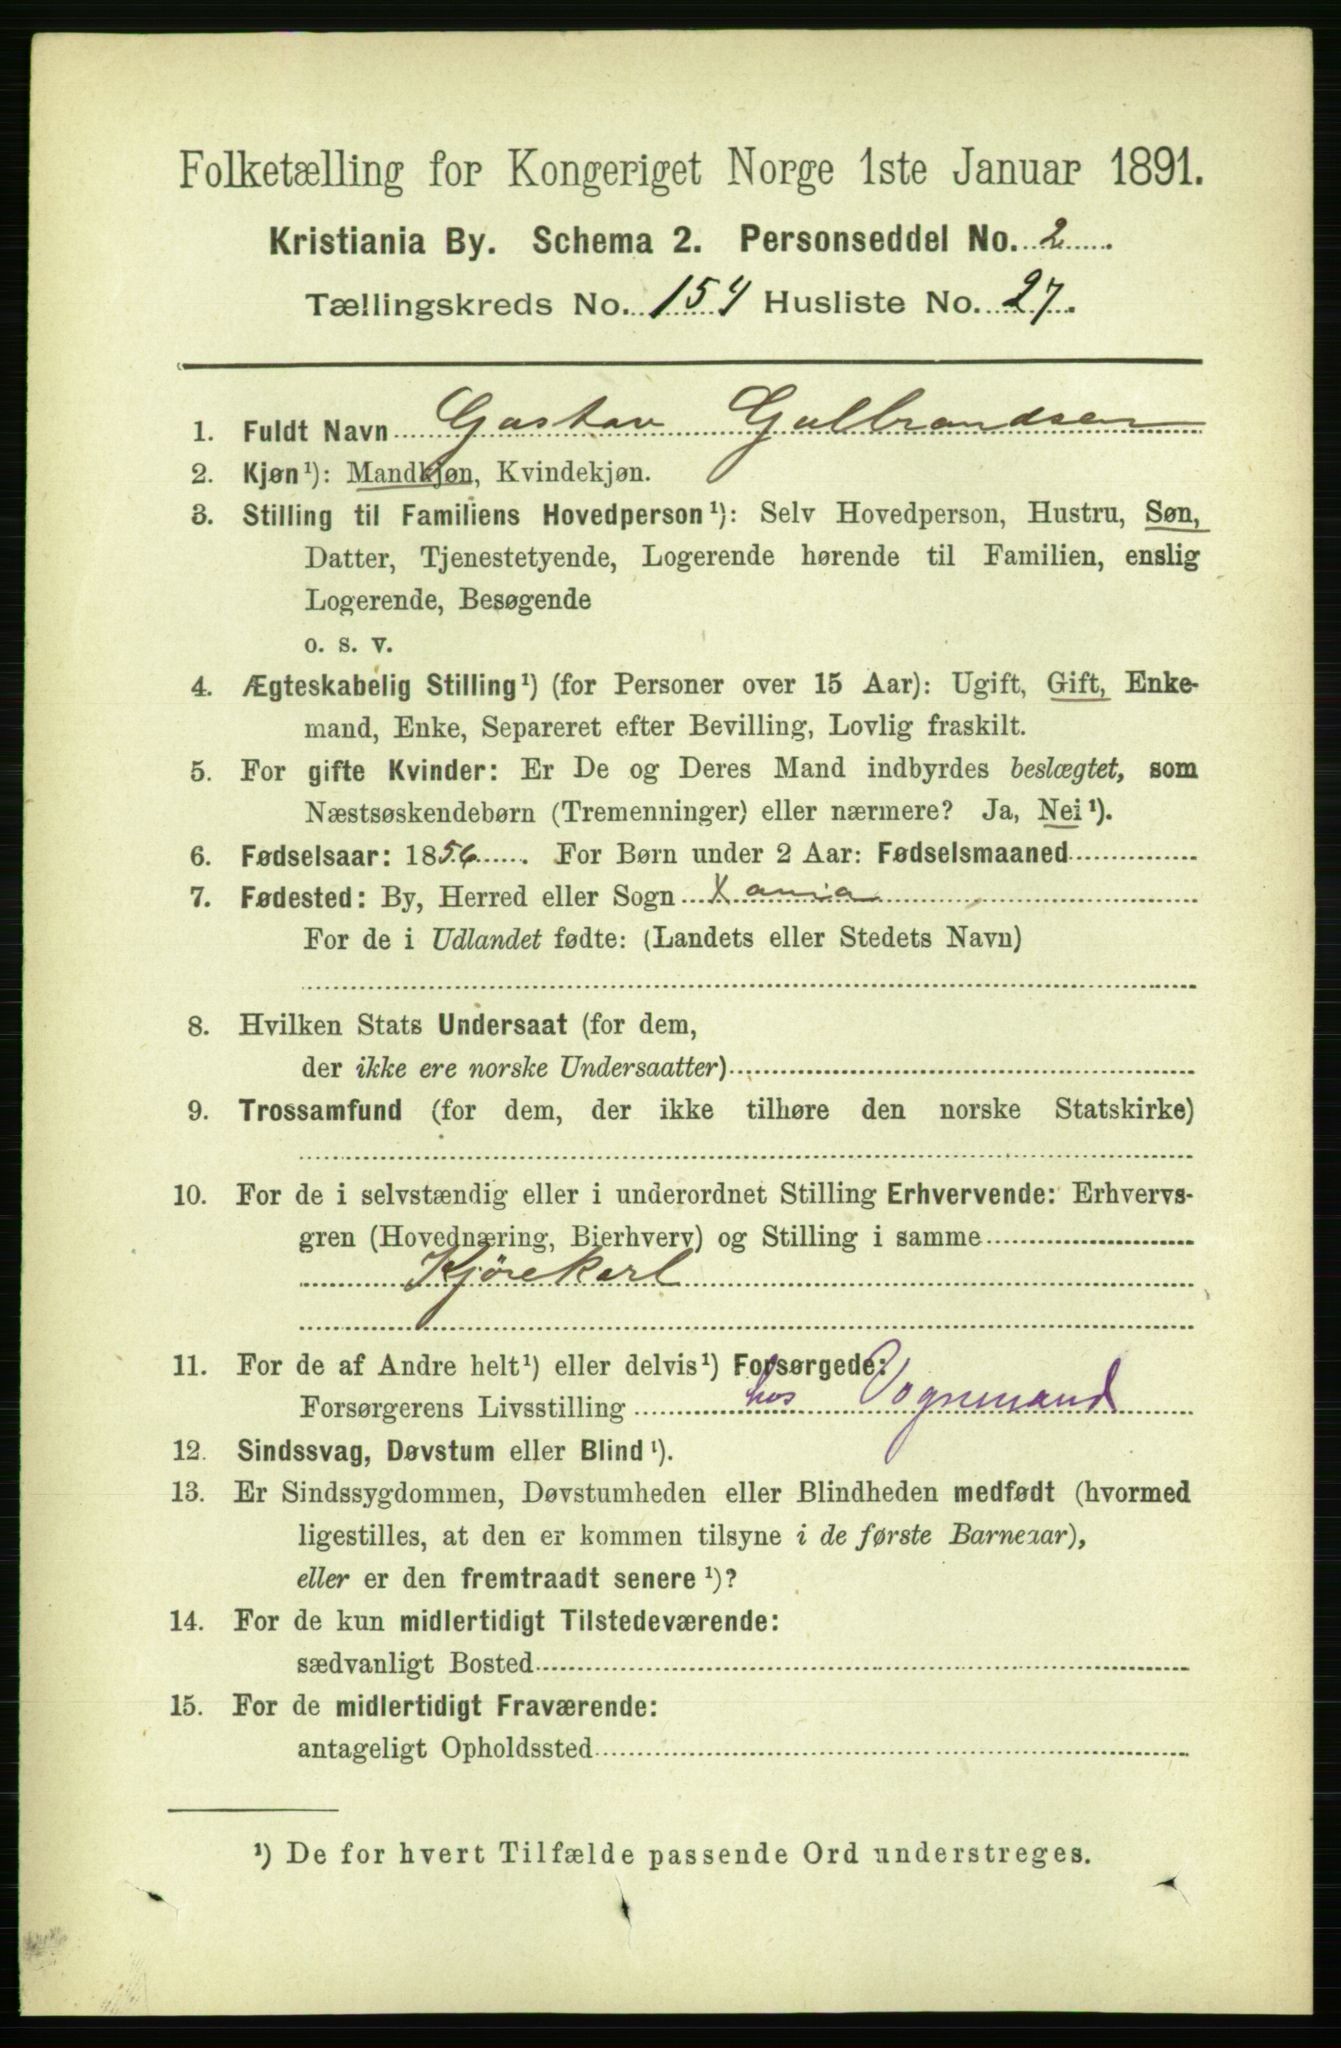 Folketælling for Kongeriget Norge 1ste Januar 1891.
Kristiania By. Schema 2. Personseddel No. 2
Tællingskreds No. 154 Husliste No. 27.
1. Fuldt Navn Gustav Gulbrandsen
2. Kjøn¹): Mandkjøn, Kvindekjøn.
3. Stilling til Familiens Hovedperson¹): Selv Hovedperson, Hustru, Søn,
Datter, Tjenestetyende, Logerende hørende til Familien, enslig
Logerende, Besøgende
o. s. v.
4. Ægteskabelig Stilling¹) (for Personer over 15 Aar): Ugift, Gift, Enke-
mand, Enke, Separeret efter Bevilling, Lovlig fraskilt.
5. For gifte Kvinder: Er De og Deres Mand indbyrdes beslægtet, som
Næstsøskendebørn (Tremenninger) eller nærmere? Ja, Nei¹).
6. Fødselsaar: 1856. For Børn under 2 Aar: Fødselsmaaned
7. Fødested: By, Herred eller Sogn Xania
For de i Udlandet fødte: (Landets eller Stedets Navn)
8. Hvilken Stats Undersaat (for dem,
der ikke ere norske Undersaatter)
9. Trossamfund (for dem, der ikke tilhøre den norske Statskirke)
10. For de i selvstændig eller i underordnet Stilling Erhvervende: Erhvervs-
gren (Hovednæring, Bierhverv) og Stilling i samme
Kjørekarl
11. For de af Andre helt¹) eller delvis¹) Forsørgede:
Forsørgerens Livsstilling hos Vognmand
12. Sindssvag, Døvstum eller Blind¹).
13. Er Sindssygdommen, Døvstumheden eller Blindheden medfødt (hvormed
ligestilles, at den er kommen tilsyne i de første Barneaar),
eller er den fremtraadt senere¹)?
14. For de kun midlertidigt Tilstedeværende:
sædvanligt Bosted
15. For de midlertidigt Fraværende:
antageligt Opholdssted
¹) De for hvert Tilfælde passende Ord understreges.